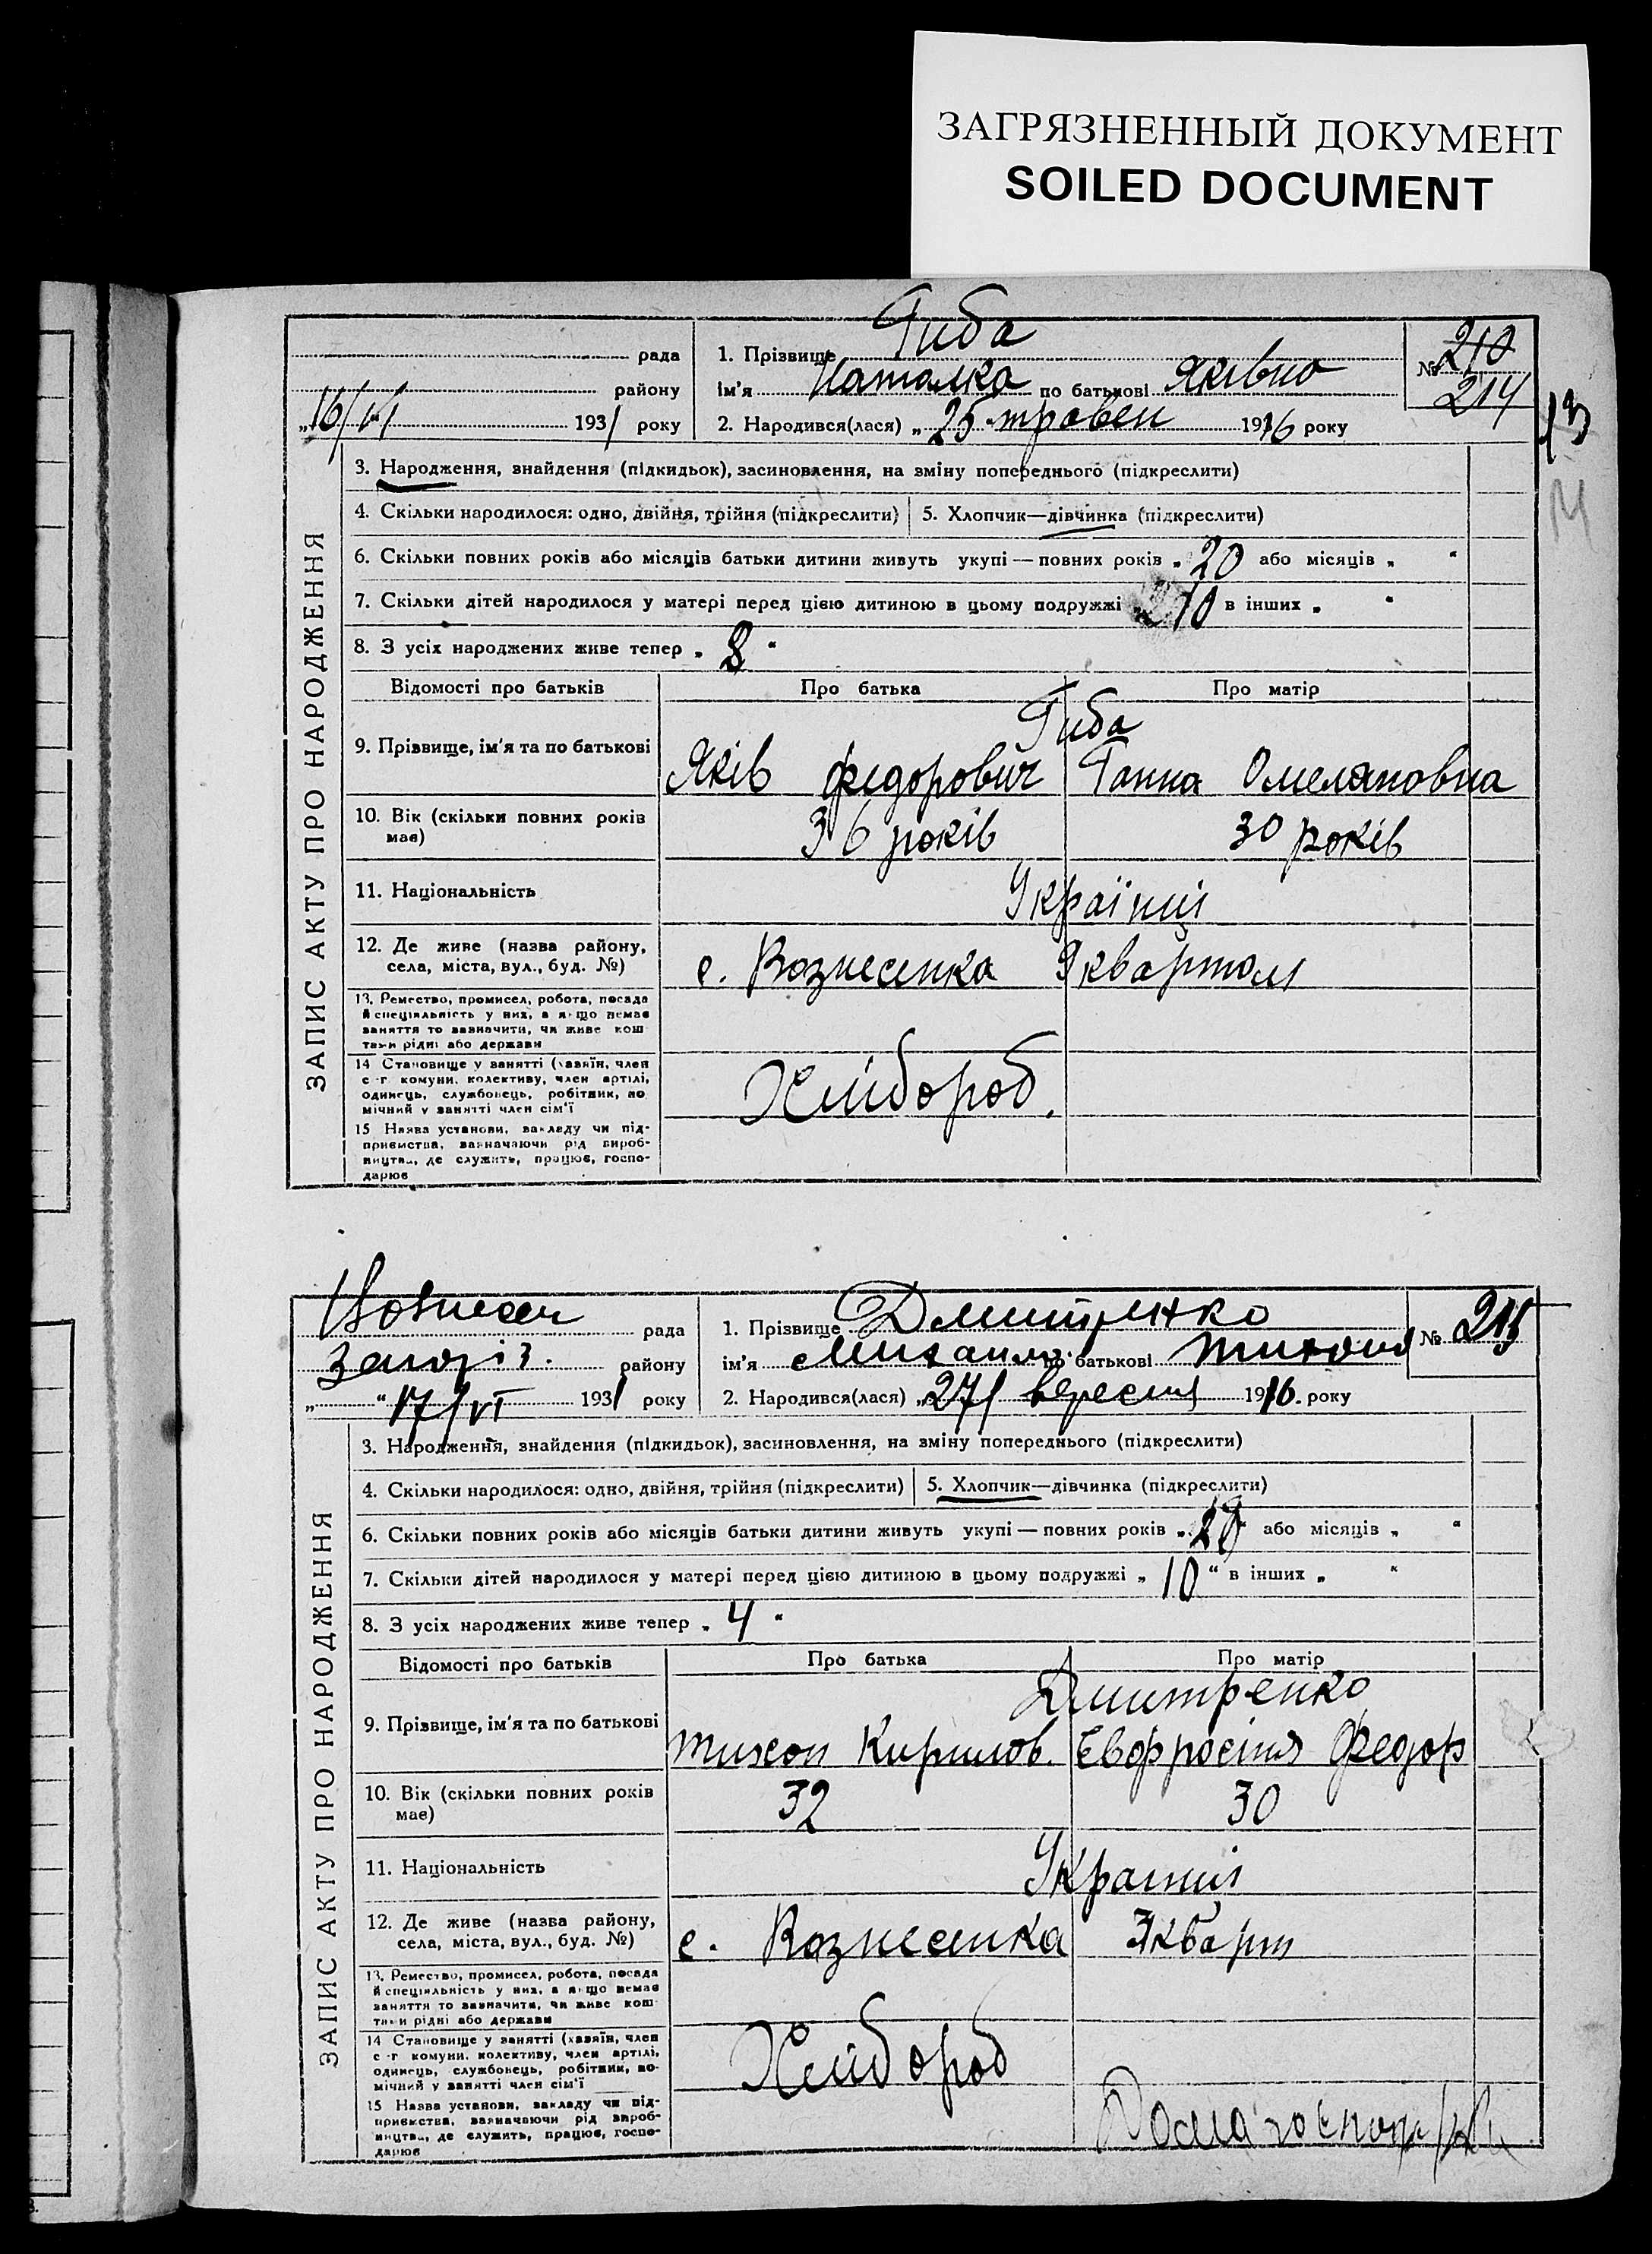 ЗАГРЯЗНЕННЫЙ ДОКУМЕНТ
SOILED DOCUMENT
рада
району
„16/VI 1931 року
1. Прізвище Гиба
ім'я Наталка по батькові Яківна
2. Народився(лася) „25 травен 1916 року
№ 210
214
13
14
ЗАПИС АКТУ ПРО НАРОДЖЕННЯ
3. Народження, знайдення (підкидьок), засиновлення, на зміну попереднього (підкреслити)
4. Скільки народилося: одно, двійня, трійня (підкреслити)
5. Хлопчик—дівчинка (підкреслити)
6. Скільки повних років або місяців батьки дитини живуть укупі — повних років „ 20 або місяців „ “
7. Скільки дітей народилося у матері перед цією дитиною в цьому подружжі „ 10 в інших „ “
8. З усіх народжених живе тепер „ 8 “
Відомості про батьків
Про батька
Про матір
9. Прізвище, ім'я та по батькові
Гиба
Яків Федорович
Ганна Омеляновна
10. Вік (скільки повних років має)
36 років
30 років
11. Національність
Українці
12. Де живе (назва району, села, міста, вул., буд. №)
с. Вознесенка квартал
13. Ремество, промисел, робота, посада й спеціяльність у них, а якщо немає заняття то зазначити, чи живе коштами рідні або держави
14 Становище у занятті (хазяїн, член с-г комуни, колективу, член артілі, одинець, службовець, робітник, помічний у занятті член сім'ї
Хлібороб.
15 Назва установи, закладу чи підприємства, зазначаючи рід виробництва, де служить, працює, господарює
Вознесен рада
Запоріз. району
„ “ 17/VI 1931 року
1. Прізвище Дмитренко
ім'я Михайло по батькові Тихонов
2. Народився(лася) „27/ вересня 1916. року
№ 215
ЗАПИС АКТУ ПРО НАРОДЖЕННЯ
3. Народження, знайдення (підкидьок), засиновлення, на зміну попереднього (підкреслити)
4. Скільки народилося: одно, двійня, трійня (підкреслити)
5. Хлопчик—дівчинка (підкреслити)
6. Скільки повних років або місяців батьки дитини живуть укупі — повних років „ або місяців „ “
7. Скільки дітей народилося у матері перед цією дитиною в цьому подружжі „ 10 “ в інших „ “
8. З усіх народжених живе тепер „ 4 “
Відомості про батьків
Про батька
Про матір
9. Прізвище, ім'я та по батькові
Дмитренко
Тихон Кирилов.
Євфросінія Федор
10. Вік (скільки повних років має)
32
30
11. Національність
Українці
12. Де живе (назва району, села, міста, вул., буд. №)
с. Вознесенка кварт
13. Ремество, промисел, робота, посада й спеціяльність у них, а якщо немає заняття то зазначити, чи живе коштами рідні або держави
14 Становище у занятті (хазяїн, член с-г комуни, колективу, член артілі, одинець, службовець, робітник, помічний у занятті член сім'ї
Хлібороб
15 Назва установи, закладу чи підприємства, зазначаючи рід виробництва, де служить, працює, господарює